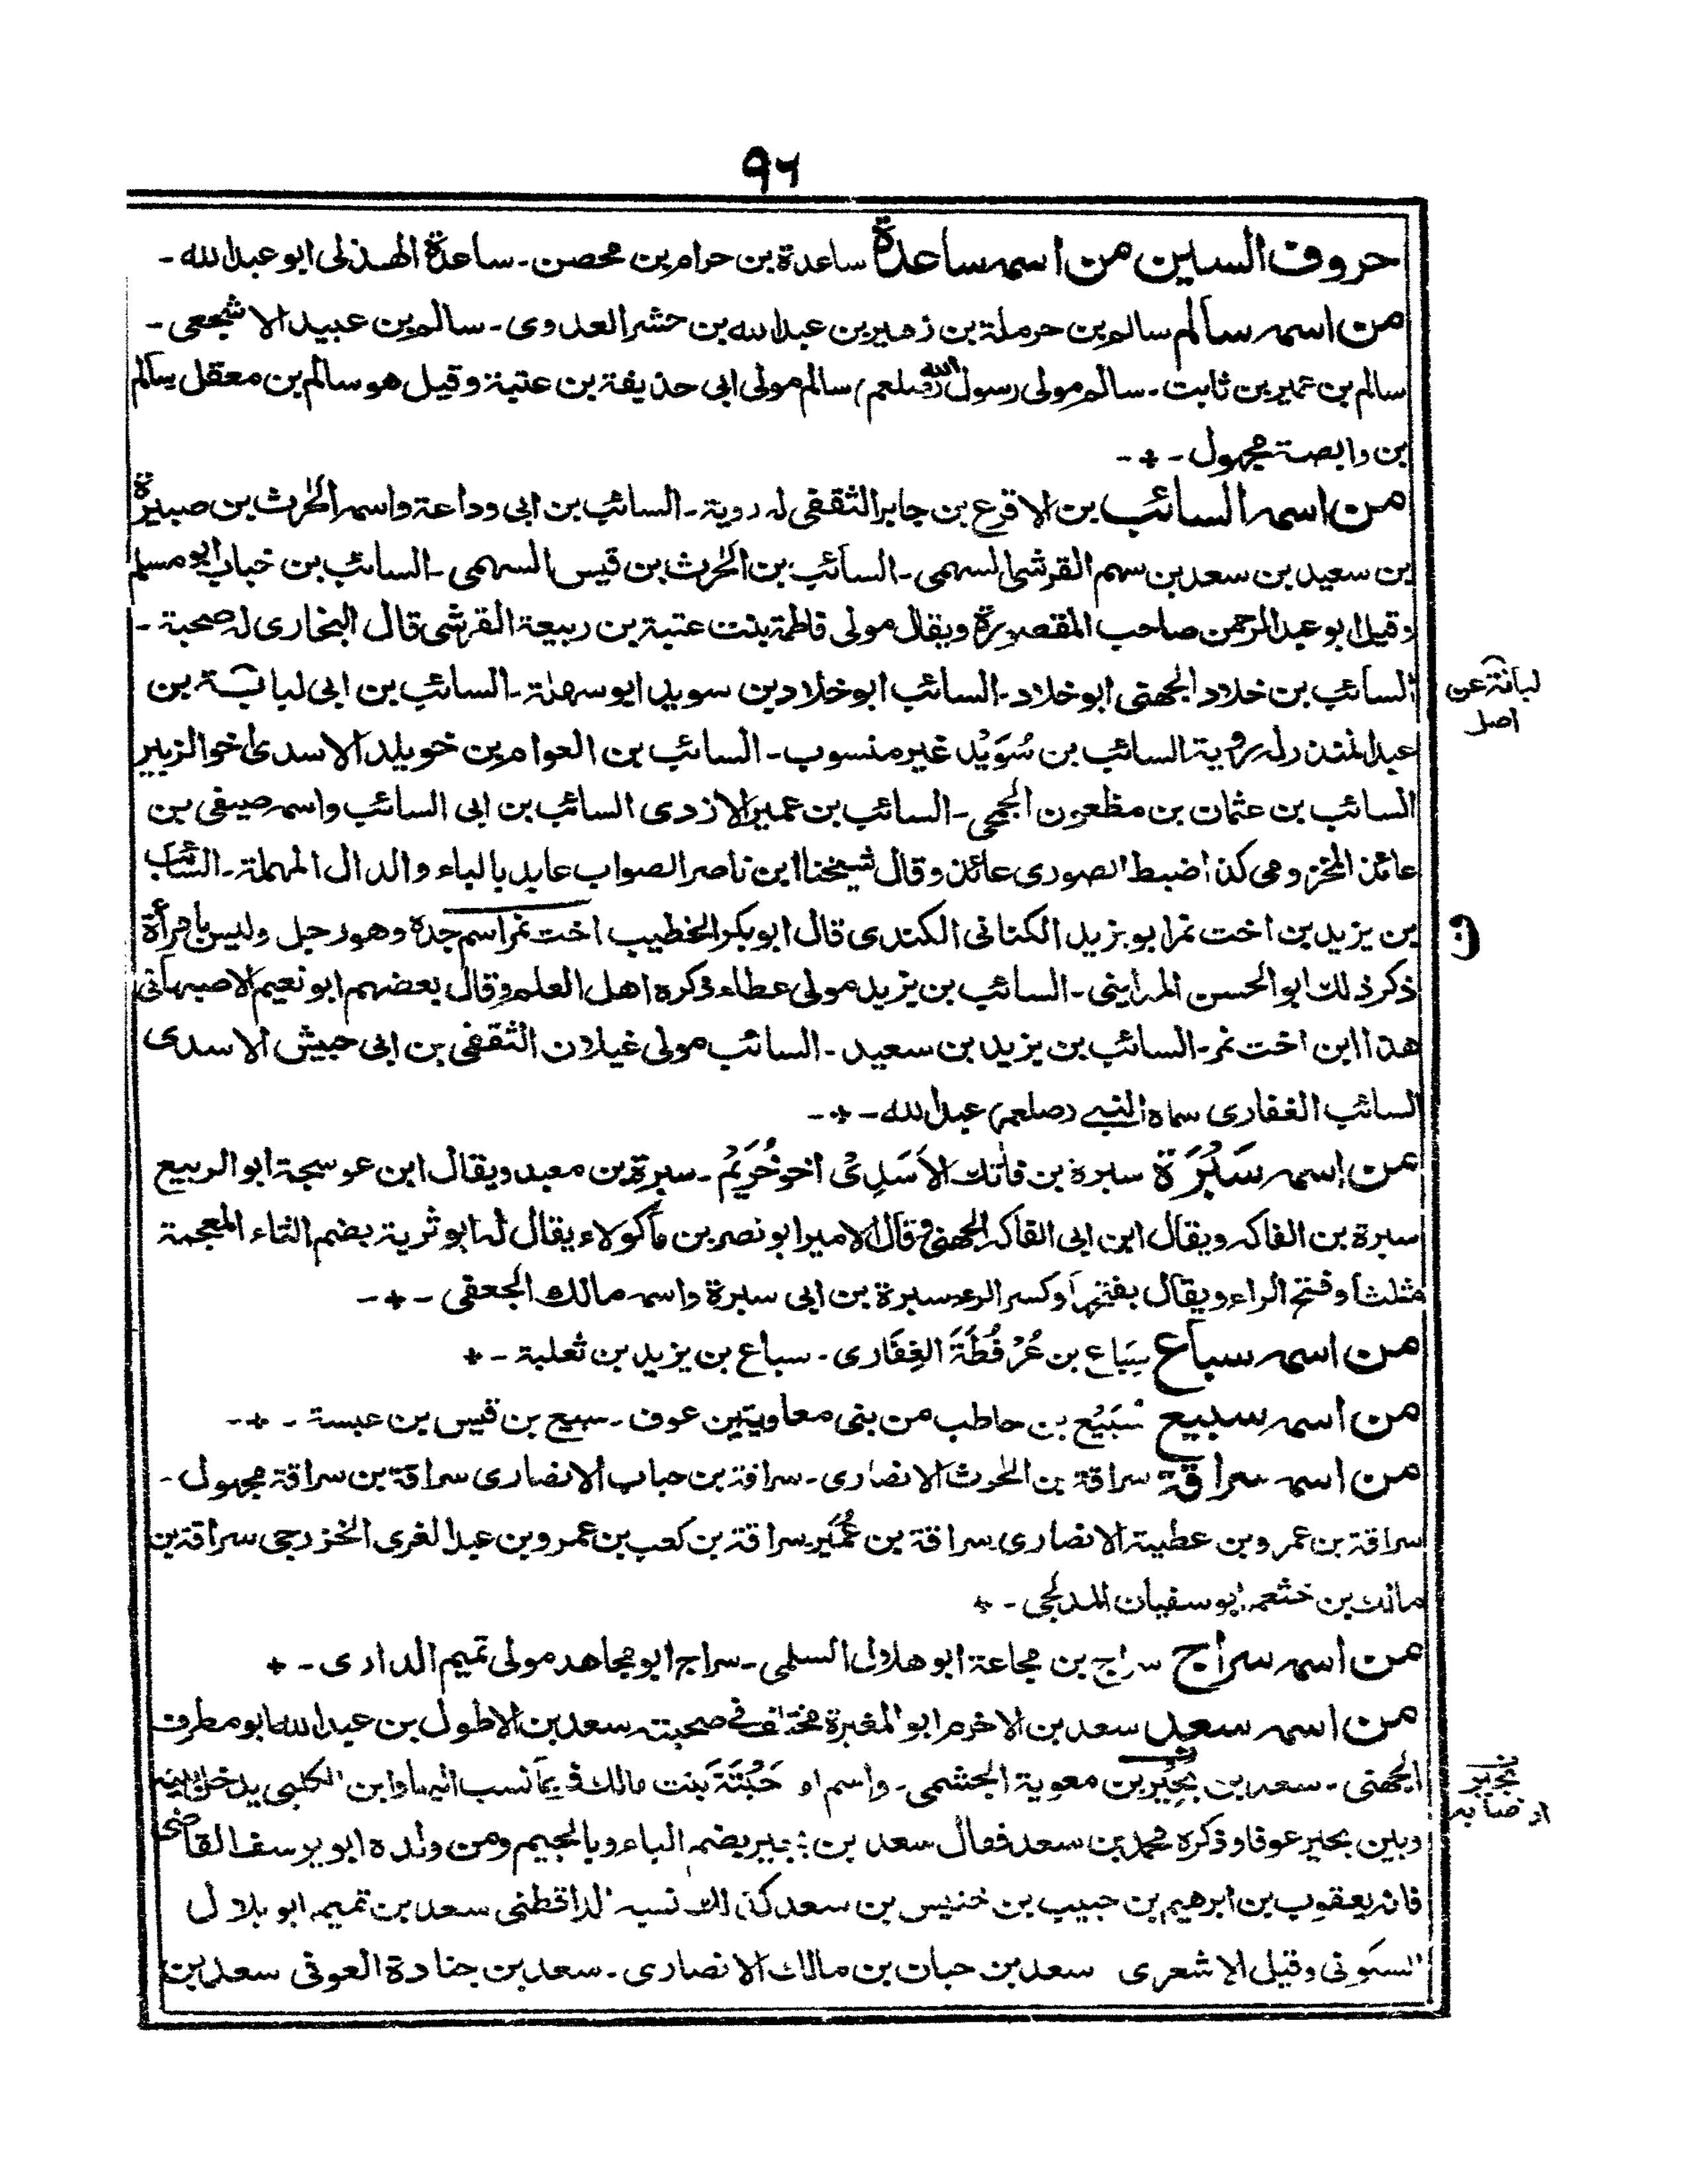 ٩٦
حروف السين من اسمه ساعدة ساعدة بن حرام بن محصن ـ ساعدة الهذلى ابو عبدالله ـ
من اسمه سالم سالم بن حرملة بن زهير بن عبدالله بن حشر العدوى ـ سالم بن عبيد الاشجعى ـ
سالم بن عمير بن ثابت ـ سالم مولى رسول الله (صلعم) سالم مولى ابى حذيفة بن عتبة وقيل هو سالم بن معقل سالم
بن وابصة مجهول ـ + ـ
من اسمه السائب بن الاقرع بن جابر الثقفى له روية ـ السائب بن ابى وداعة واسمه الحرث بن صبيرة
بن سعيد بن سعد بن سهم القرشى السهمى ـ السائب بن الحرث بن قيس السهمى ـ السائب بن خباب ابو مسلم
وقيل ابو عبد الرحمن صاحب المقصورة ويقال مولى فاطمة بنت عتبة بن ربيعة القرشى قال البخارى له صحبة ـ
السائب بن خلاد الجهنى ابو خلاد ـ السائب ابو خلاد بن سويد ابو سهلة ـ السائب بن ابى لبابة بن
لبانة عن
اصل
عبد المنذر له روية السائب بن سُوَيْد غير منسوب ـ السائب بن العوام بن خويلد الاسدى اخو الزبير
السائب بن عثمان بن مظعون الجمحى ـ السائب بن عمير الازدى السائب بن ابى السائب واسمه صيفى بن
عائذ المخزومى كذا ضبط الصورى عائذ وقال شيخنا ابن ناصر الصواب عابد بالباء والدال المهملة ـ السائب
بن يزيد بن اخت نمر ابو يزيد الكنانى الكندى قال ابو بكر الخطيب اخت نمر اسم جده وهو رجل وليس بامرأة
ذكر ذلك ابو الحسن المداينى ـ السائب بن يزيد مولى عطاء ذكره اهل العلم وقال بعضهم ابو نعيم الاصبهانى
هذا ابن اخت نمر ـ السائب بن يزيد بن سعيد ـ السائب مولى غيلان الثقفى بن ابى حبيش الاسدى
السائب الغفارى سماه النبي (صلعم) عبدالله ـ + ـ
من اسمه سَبْرَة سبرة بن فاتك الاَسَدِىْ اخو خُرَيْم ـ سبرة بن معبد ويقال ابن عوسجة ابو الربيع
سبرة بن الفاكه ويقال ابن ابى الفاكه الجهنى قال الامير ابو نصر بن ماكولاء يقال له ابو ثرية بضم الثاء المعجمة
مثلثا وفتح الراء ويقال بفتحها وكسر الراء سبرة بن ابى سبرة واسمه مالك الجعفى ـ + ـ
من اسمه سباع سِبَاع بن عُرْفُطَةَ الغِفَارى ـ سباع بن يزيد بن ثعلبة ـ +
من اسمه سبيع سُبَيْع بن حاطب من بنى معاوية بن عوف ـ سبيع بن قيس بن عبسة ـ + ـ
من اسمه سراقة سراقة بن الحرث الانصارى ـ سراقة بن حباب الانصارى سراقة بن سراقة مجهول ـ
سراقة بن عمرو بن عطية الانصارى سراقة بن عُمَير سراقة بن كعب بن عمرو بن عبد الغرى الخزرجى سراقة بن
مالك بن خثعم ابو سفيان المدلجى ـ +
من اسمه سراج سراج بن مجاعة ابو هلال السلمى ـ سراج ابو مجاهد مولى تميم الدارى ـ +
من اسمه سعد سعد بن الاخرم ابو المغيرة مختلف فى صحبته سعد بن الاطول بن عبدالله ابو مطرف
الجهنى ـ سعد بن بُجَيْر بن معوية الجشمى ـ واسم او حَبْتَة بنت مالك فيما نسب اليها وابن الكلبى يدخل بينه
بجير
وبين بحير عوفا وذكره محمد بن سعد فقال سعد بن بجير بضم الباء وبالجيم ومن ولده ابو يوسف القاضى
فانه يعقوب بن ابرهيم بن حبيب بن خنيس بن سعد كذلك نسبه الداقطنى سعد بن تميم ابو بلال
السكونى وقيل الاشعرى سعد بن حبان بن مالك الانصارى ـ سعد بن جنادة العوفى سعد بن